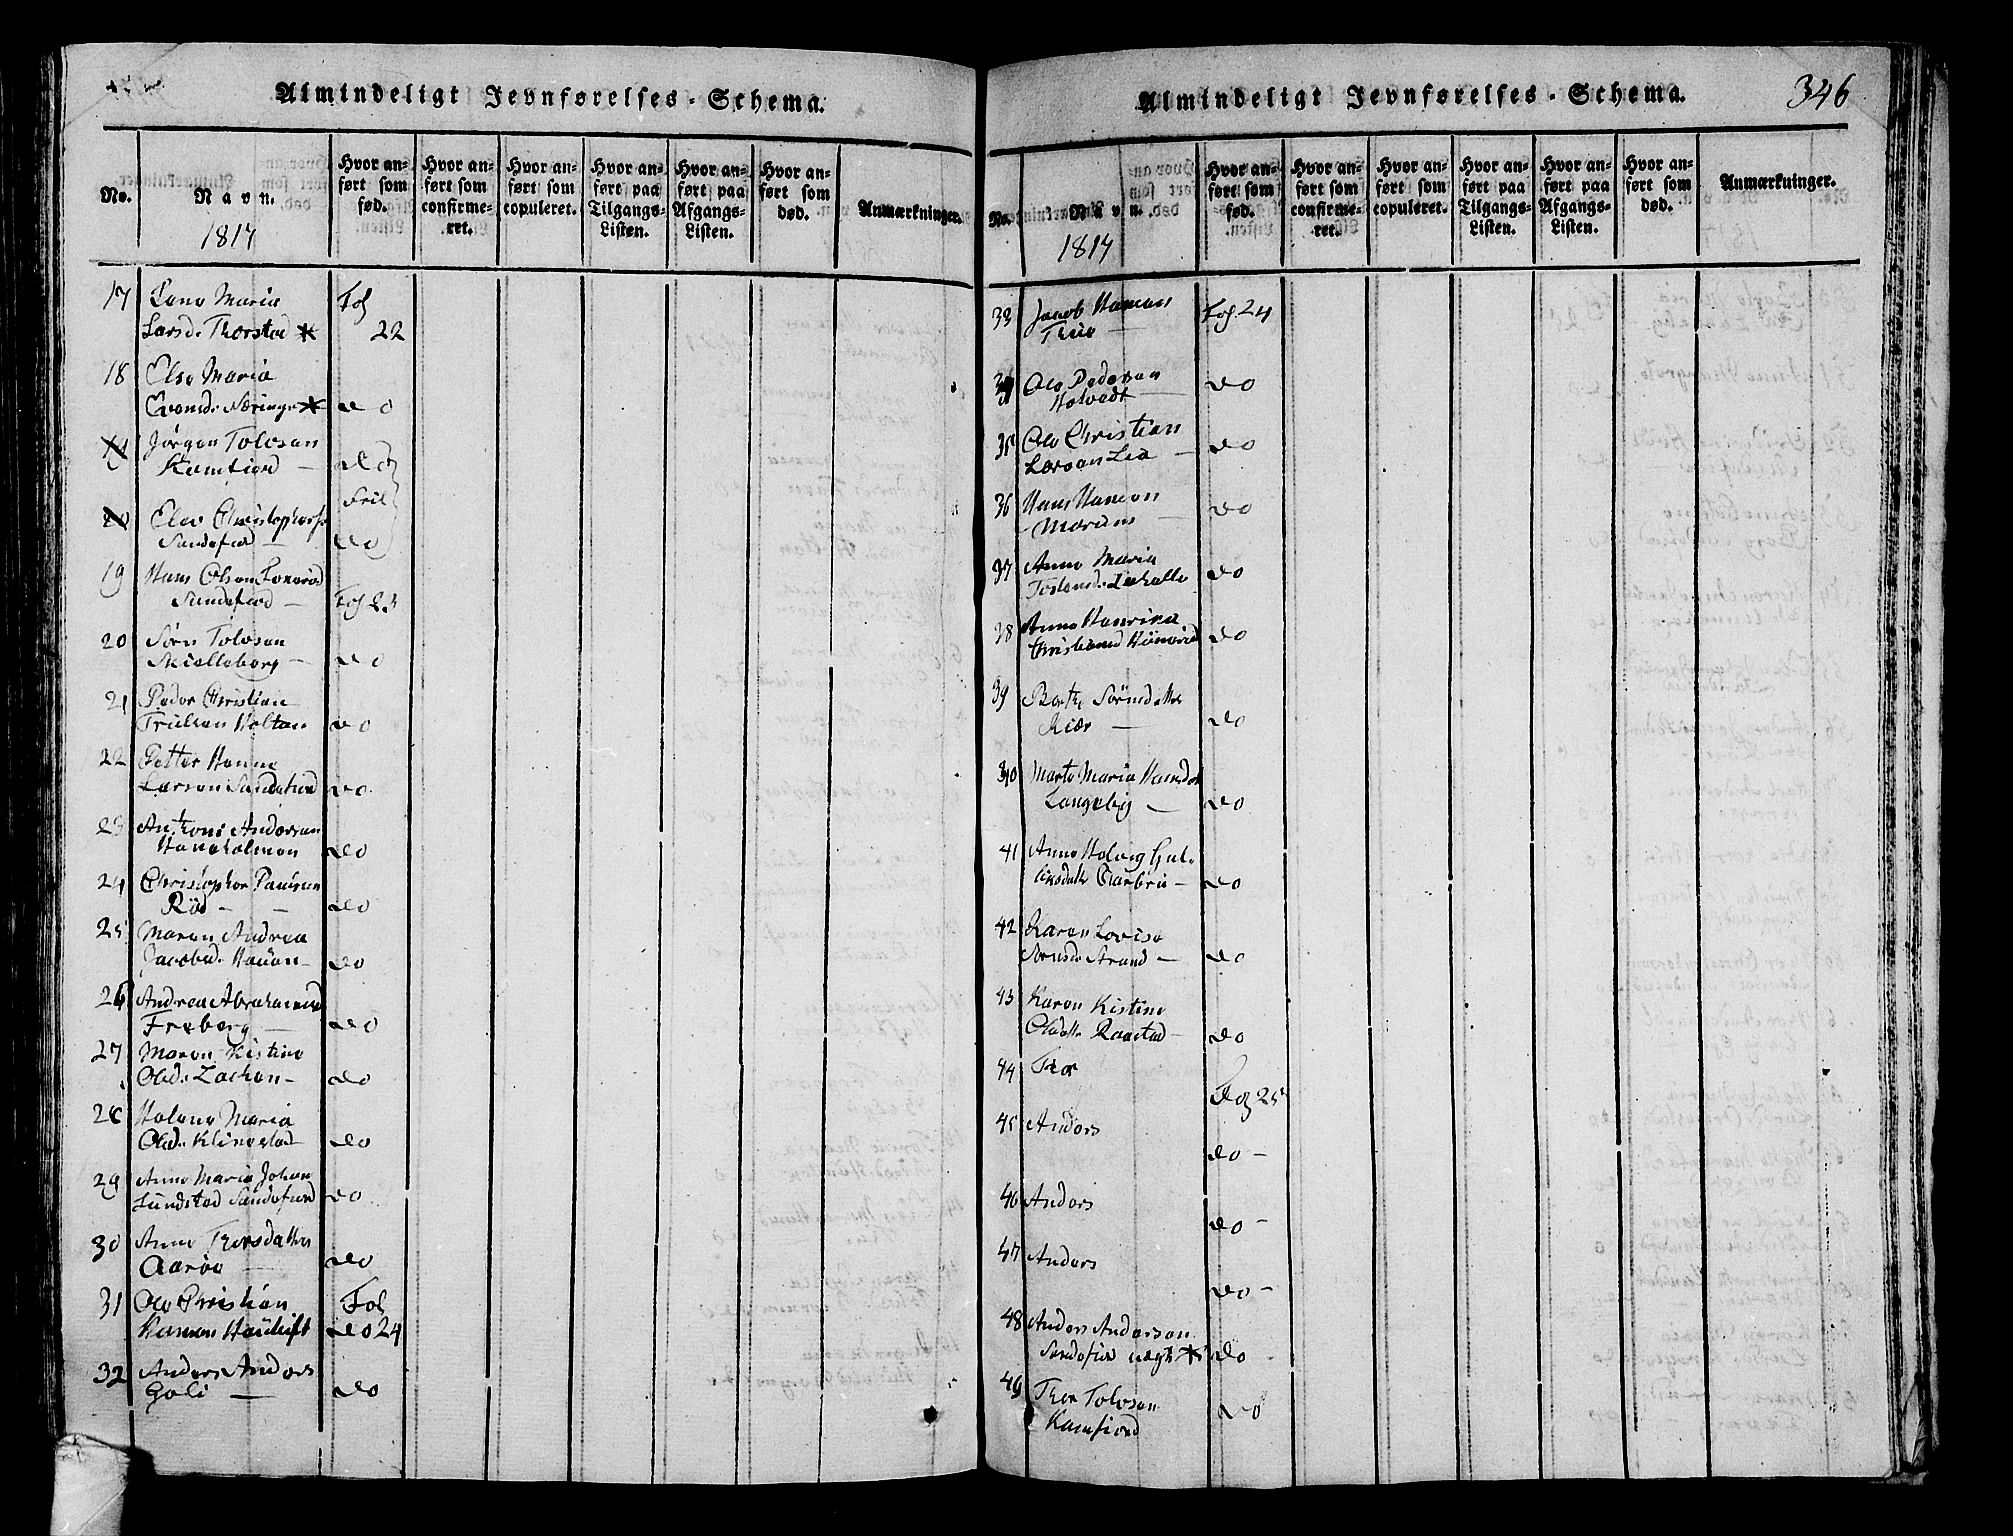 Almindeligt Jevnførelses-Schema.
No.
Navn.
1817
Hvor anført som fød.
Hvor anført som confirmeret.
Hvor anført som copuleret.
Hvor anført paa Tilgangs-Listen.
Hvor anført paa Afgangs-Listen.
Hvor anført som død.
Anmærkninger.
17 Lene Maria Fol
Larsd. Thorstad * 22
18 Else Maria
Evensd. Næringe * do
Jørgen Tolvsen
Kamfiord — do
Fril
Elev Christophers
Sandefiord — do
19 Hans Olsen
Sandefiord — Fol 23
20 Sørn Tolvsen
Skielleberg — do
21 Peder Christian
Trulsen Holtan do
22 Petter Hanne
Larsen Sandefiord do
23 Anthoni Andersen
Haneholmen do
24 Christopher Paulsen
Röd — — do
25 Maren Andrea
Jacobsd. Hauan — do
26 Andrea Abrahamsd
Freberg — do
27 Maren Kistine
Olsd. — do
28 Helene Maria
Olsd. Klinestad do
29 Anne Maria Johan
Lundsted Sandefiord do
30 Anne Thorsdatter
Aaröe — do
31 Ole Christian Fol
Hansen do 24
32 Anders Anders
Goli — do
Almindeligt Jevnførelses-Schema. 346
No.
Navn.
1817
Hvor anført som fød.
Hvor anført som confirmeret.
Hvor anført som copuleret.
Hvor anført paa Tilgangs-Listen.
Hvor anført paa Afgangs-Listen.
Hvor anført som død.
Anmærkninger.
33 Jacob Hansen Fol 24
34 Ole Pedersen do
35 Ole Christian do
Larsen Lia —
36 Hans Hansen do
37 Anne Maria do
38 Anne Henrica do
39 Berthe Sörensdatter
Kiær — do
40 Marte Maria Hansdat
Langeby — do
41 Anne Helvig Gul-
do
42 Karen Lovise
Sörnsd. Strand — do
43 Karen Kistine
Olsdatt Raastad — do
44 Thor
Fol 25
45 Anders
do —
46 Anders
do —
47 Anders
do —
48 Anders Andersen
Sandefiord * do
49 Thor Tolvsen do
Kamfiord